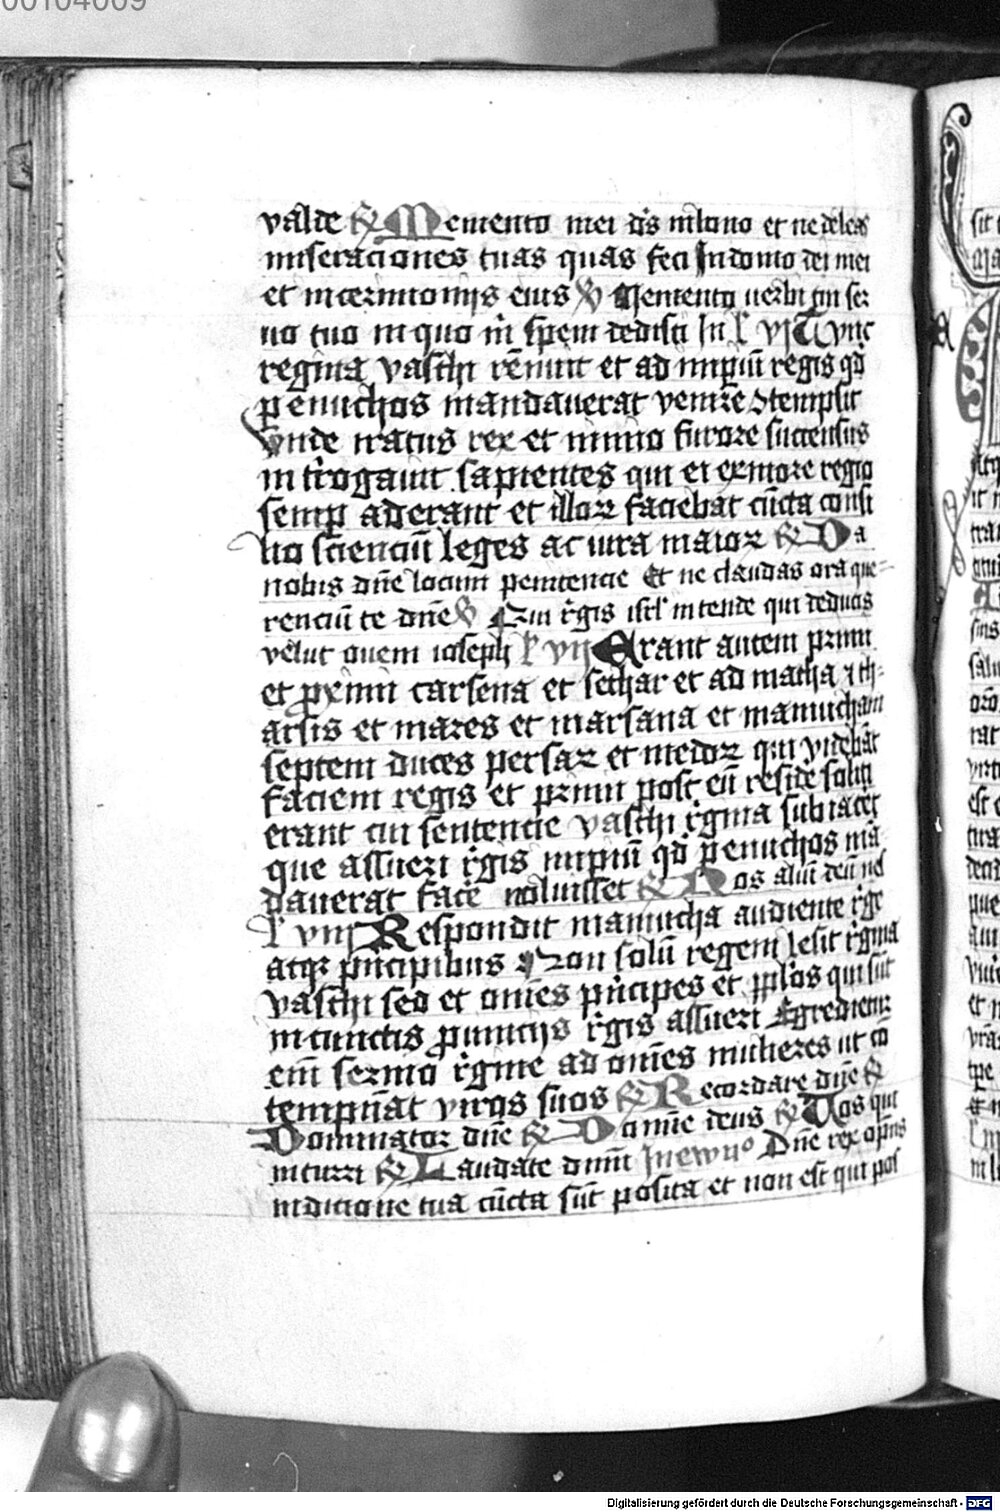 00104009
valde ℟ Memento mei dñs in bono et ne deleas
miseraciones tuas quas feci In domo dei mei
et in cerimonijs eius ℣ Memento uerbi tui ser
uo tuo in quo m̃ spem dedisti In l̕ vj Tunc
regina vasthi rẽnuit et ad impiũ regis qd̃
p enuchos mandauerat venire ↄtempsit
vnde iratus rex et nimio furore succensus
in trogauit sapientes qui ei ex more regio
semp aderant et illoꝝ faciebat cũcta consi
lio scienciũ leges ac iura maioꝝ ℟ Da
nobis dñe locum penitencie Et ne claudas ora que=
renciũ te dñe ℣ Qui r̃gis isrl̕ intende qui deducis
velut ouem ioseph l̕ vij Erant autem primi
et ꝓximi carsena et sethar et ad matha ⁊ th=
arsis et mares et marsana et mamucham
septem duces persaꝝ et medoꝝ qui videbãt
faciem regis et primi post eũ residẽ soliti
erant cui sentencie vasthi r̃gina subiacet
que assueri r̃gis impiũ qd̃ p enuchos mã
dauerat facẽ noluisset ℟ Nos aliũ deũ nes̃
l̕ viij Respondit mamucha audiente r̃ge
atqꝫ pncipibus Non solũ regem lesit r̃gina
vasthi sed et om̃es pñcipes et ppl̕os qui sũt
in cunctis ꝓuincijs r̃gis assueri Egredietur
eñi sermo r̃gine ad om̃es mulieres ut cõ
tempnãt viros suos ℟ Recordare dñe ℟
Dominator dñe ℟ Domine deus ℟ Vos qui
in turri ℟ Laudate dnm̃ In ewno Dñe rex op̃ns
in dicione tua cũcta sũt posita et non est qui pos
Digitalisierung gefördert durch die Deutsche Forschungsgemeinschaft - DFG